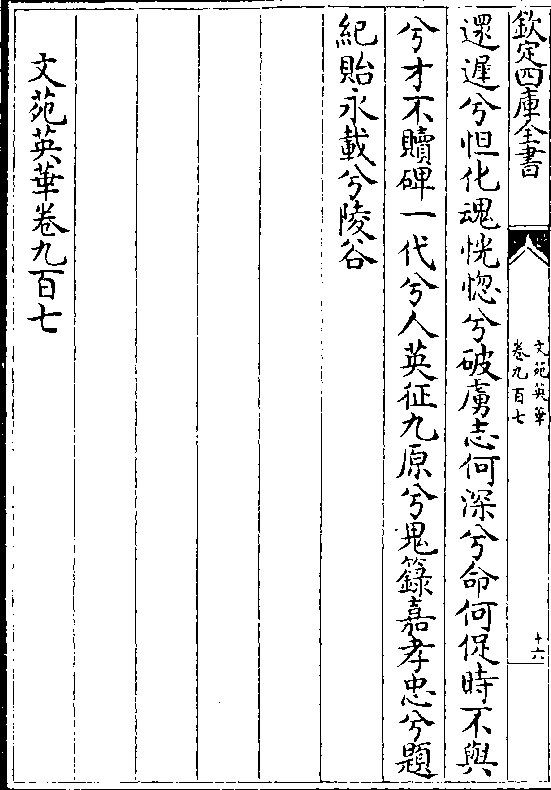 欽定四庫全書
文苑英華
卷九百七
十六
還遲兮怛化魂恍惚兮破虜志何深兮命何促時不與
兮才不贖碑一代兮人英征九原兮鬼籙嘉孝忠兮題
紀貽永載兮陵谷
文苑英華卷九百七